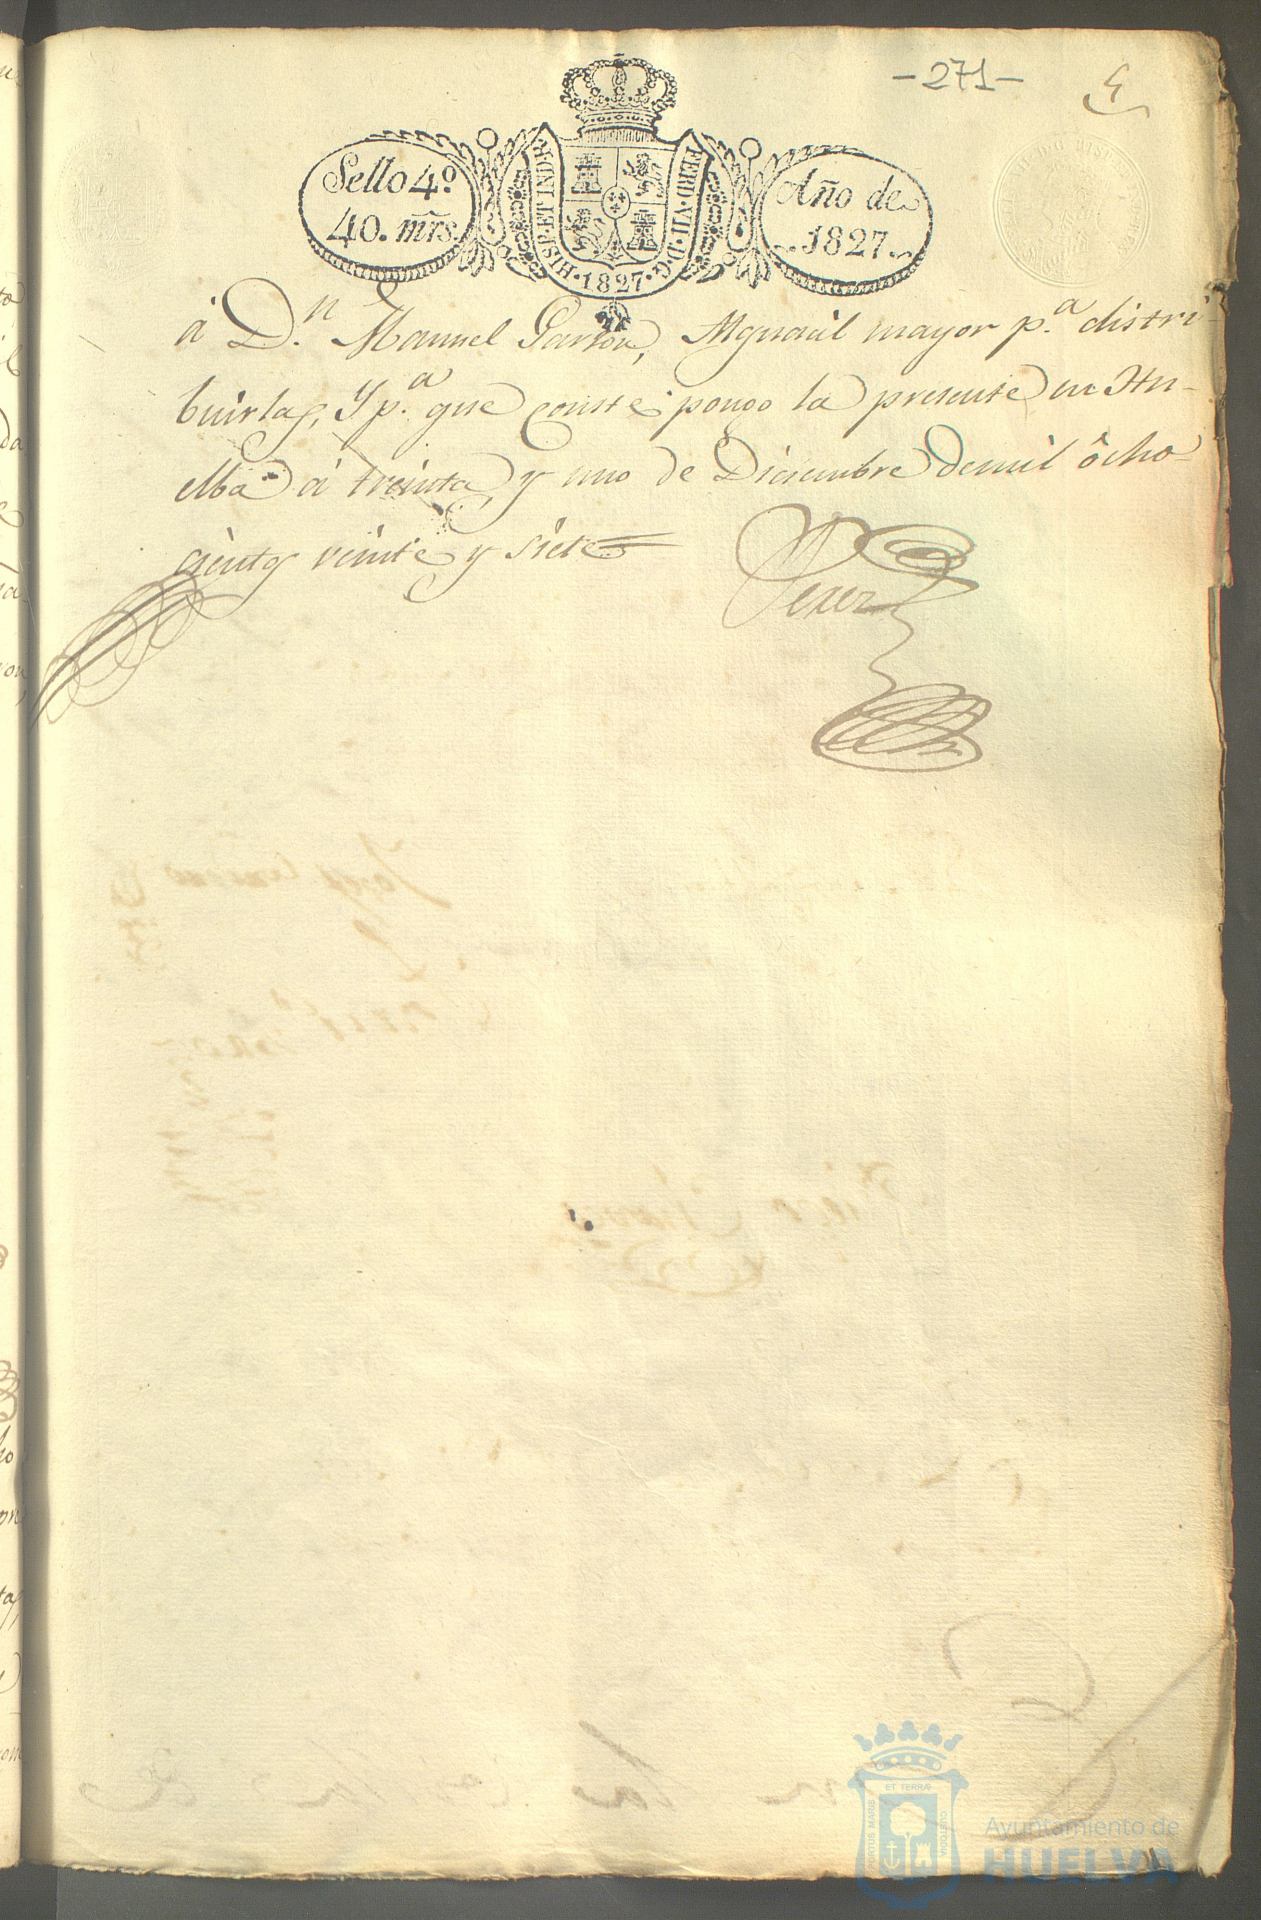 -271-
Sello 4º
40. mrs.
HISP. ET INDR.
1827
FERD. VII. D. G.
Año de
1827.
a D.n Manuel Garzon, Alguacil mayor p.a distri-
buirlas, Y p.a que conste pongo la presente en Hu-
elba à treinta y uno de Diciembre de mil ôcho-
cientos veinte y siete
Perez
ET TERRÆ
PORTUS MARIS
CUSTODIA
Ayuntamiento de
HUELVA